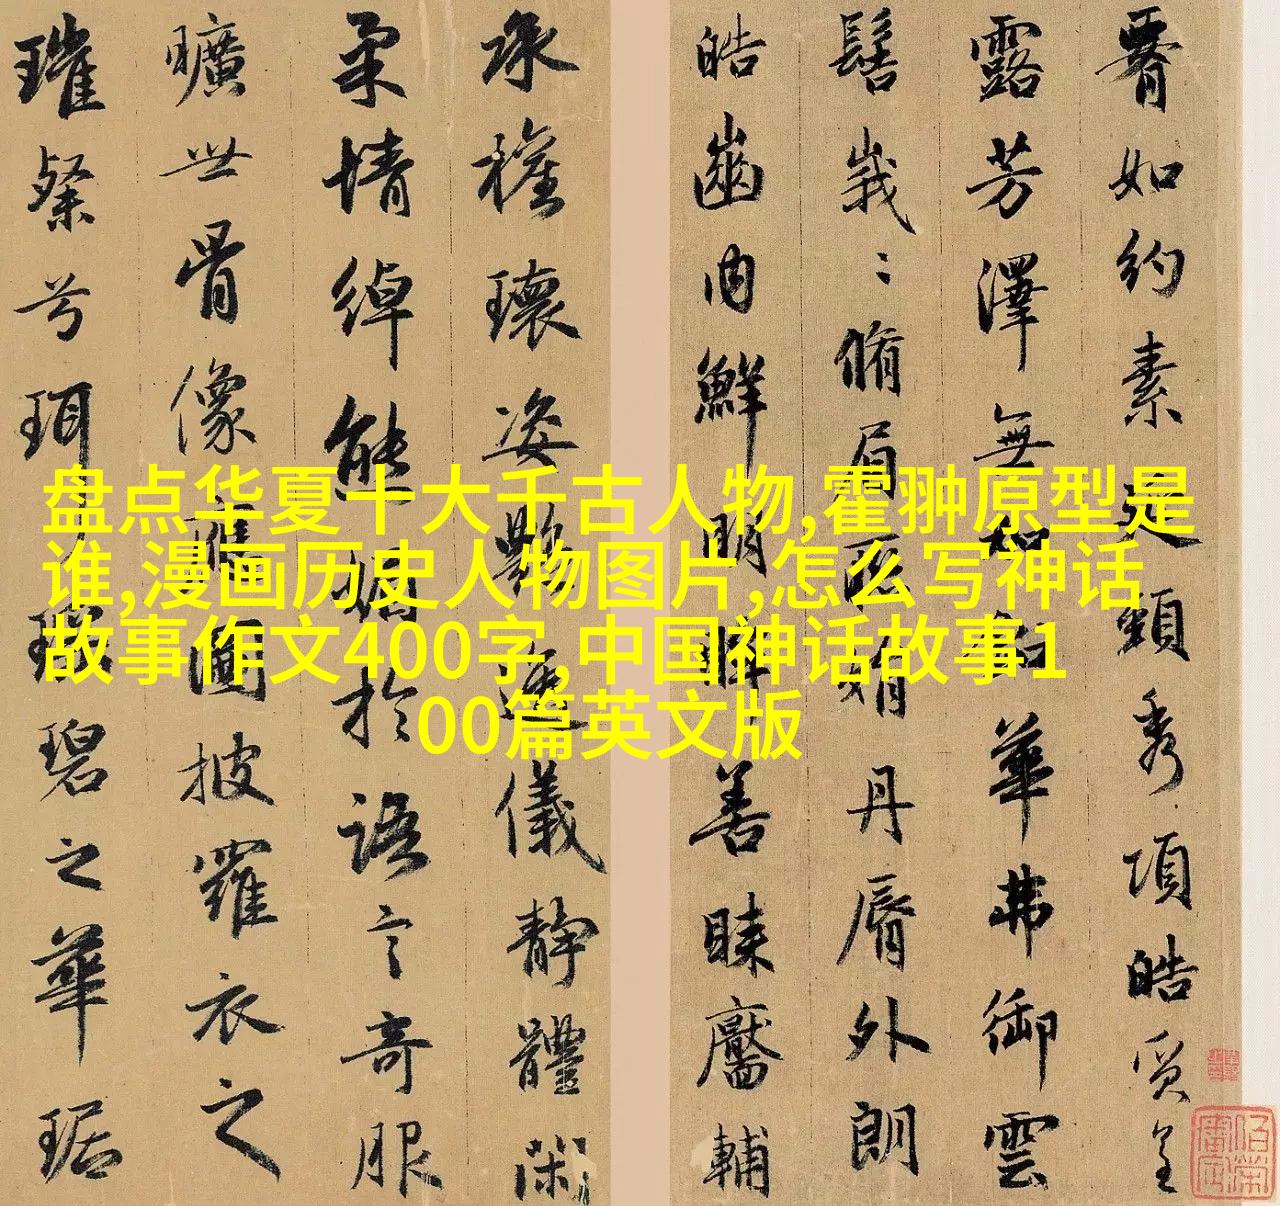 腰如約素延頸秀項皓質呈
露芳澤無加鉛華弗御雲
髻峩〻脩眉聯娟丹脣外朗
皓齒内鮮明眸善睞靨輔
承權瓌姿艷逸儀靜體閑
柔情綽態媚於語言奇服
曠世骨像應圖披羅衣之
璀粲兮珥瑤碧之華琚
盘点华夏十大千古人物,霍翀原型是
谁,漫画历史人物图片,怎么写神话
故事作文400字,中国神话故事1
00篇英文版